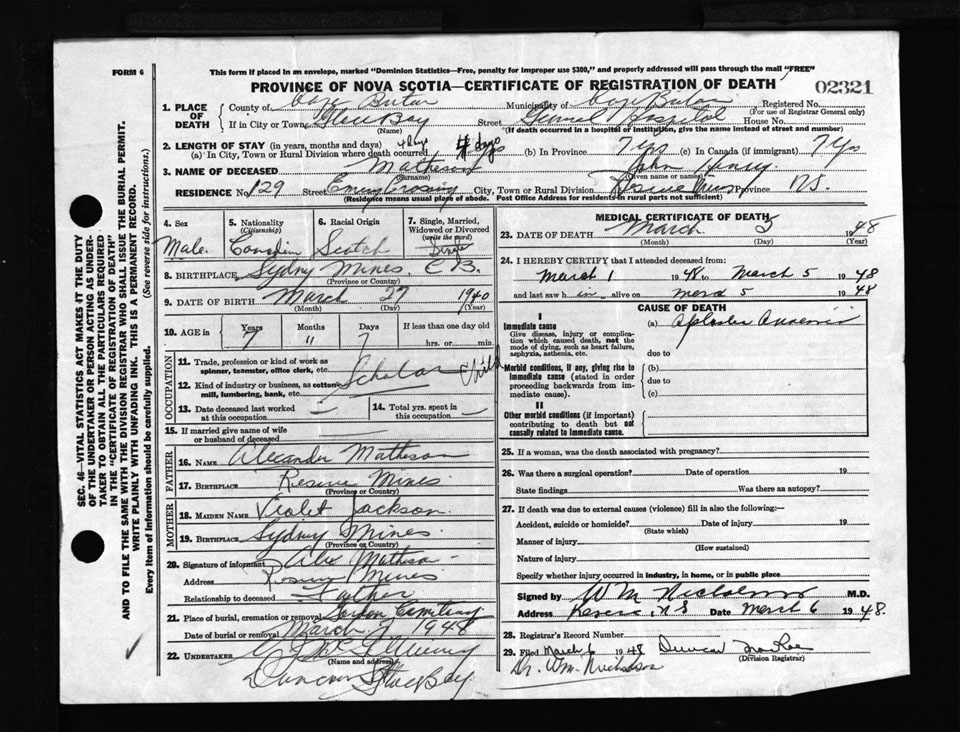 FORM 6
This form if placed in an envelope, marked "Dominion Statistics—Free, penalty for improper use $300," and properly addressed will pass through the mail "FREE"
PROVINCE OF NOVA SCOTIA—CERTIFICATE OF REGISTRATION OF DEATH
02321
1. PLACE OF DEATH
County of Cape Breton Municipality of Cape Breton Registered No.
(For use of Registrar General only)
If in City or Town Glace Bay Street General Hospital House No.
(Name) (If death occurred in a hospital or institution, give the name instead of street and number)
2. LENGTH OF STAY (in years, months and days)
(a) In City, Town or Rural Division where death occurred 4 days (b) In Province 7 yrs (c) In Canada (if immigrant) 7 yrs
3. NAME OF DECEASED Matheson John Henry
(Surname) (Given name or names)
RESIDENCE No. 129 Street Emery Crossing City, Town or Rural Division Reserve Mines Province N.S.
(Residence means usual place of abode. Post Office Address for residents in rural parts not sufficient)
4. Sex Male
5. Nationality (Citizenship) Canadian
6. Racial Origin Scotch
7. Single, Married, Widowed or Divorced (write the word) Single
8. BIRTHPLACE Sydny Mines, C B.
(Province or Country)
9. DATE OF BIRTH March 27 1940
(Month) (Day) (Year)
10. AGE in Years Months Days If less than one day old
7 11 7 hrs. or min.
OCCUPATION
11. Trade, profession or kind of work as spinner, teamster, office clerk, etc. Scholar Child
12. Kind of industry or business, as cotton mill, lumbering, bank, etc.
13. Date deceased last worked at this occupation
14. Total yrs. spent in this occupation
15. If married give name of wife or husband of deceased
FATHER
16. NAME Alexander Matheson
17. BIRTHPLACE Reserve Mines
(Province or Country)
MOTHER
18. MAIDEN NAME Violet Jackson
19. BIRTHPLACE Sydny Mines
(Province or Country)
20. Signature of informant Alex Matheson
Address Reserve Mines
Relationship to deceased Father
21. Place of burial, cremation or removal Cemetery
Date of burial or removal March 7 1948
22. UNDERTAKER
(Name and address)
Glace Bay
MEDICAL CERTIFICATE OF DEATH
23. DATE OF DEATH March 5 1948
(Month) (Day) (Year)
24. I HEREBY CERTIFY that I attended deceased from:
March 1 1948 to March 5 1948
and last saw him alive on March 5 1948
CAUSE OF DEATH
I
Immediate cause
Give disease, injury or complication which caused death, not the mode of dying, such as heart failure, asphyxia, asthenia, etc.
(a) Aplastic Anaemia
due to
Morbid conditions, if any, giving rise to immediate cause (stated in order proceeding backwards from immediate cause).
(b)
due to
(c)
II
Other morbid conditions (if important) contributing to death but not causally related to immediate cause.
25. If a woman, was the death associated with pregnancy?
26. Was there a surgical operation? Date of operation 19
State findings Was there an autopsy?
27. If death was due to external causes (violence) fill in also the following:—
Accident, suicide or homicide? Date of injury 19
(State which)
Manner of injury
(How sustained)
Nature of injury
Specify whether injury occurred in industry, in home, or in public place
Signed by W M Nicholson M.D.
Address Reserve, N S Date March 6 1948.
28. Registrar's Record Number
29. Filed March 6 1948 Duncan
(Division Registrar)
Dr. Wm. Nicholson
SEC. 46—VITAL STATISTICS ACT MAKES IT THE DUTY
OF THE UNDERTAKER OR PERSON ACTING AS UNDERTAKER
TO OBTAIN ALL THE PARTICULARS REQUIRED
IN THE "CERTIFICATE OF REGISTRATION OF DEATH"
AND TO FILE THE SAME WITH THE DIVISION REGISTRAR WHO SHALL ISSUE THE BURIAL PERMIT.
WRITE PLAINLY WITH UNFADING INK. THIS IS A PERMANENT RECORD.
Every item of information should be carefully supplied. (See reverse side for instructions.)